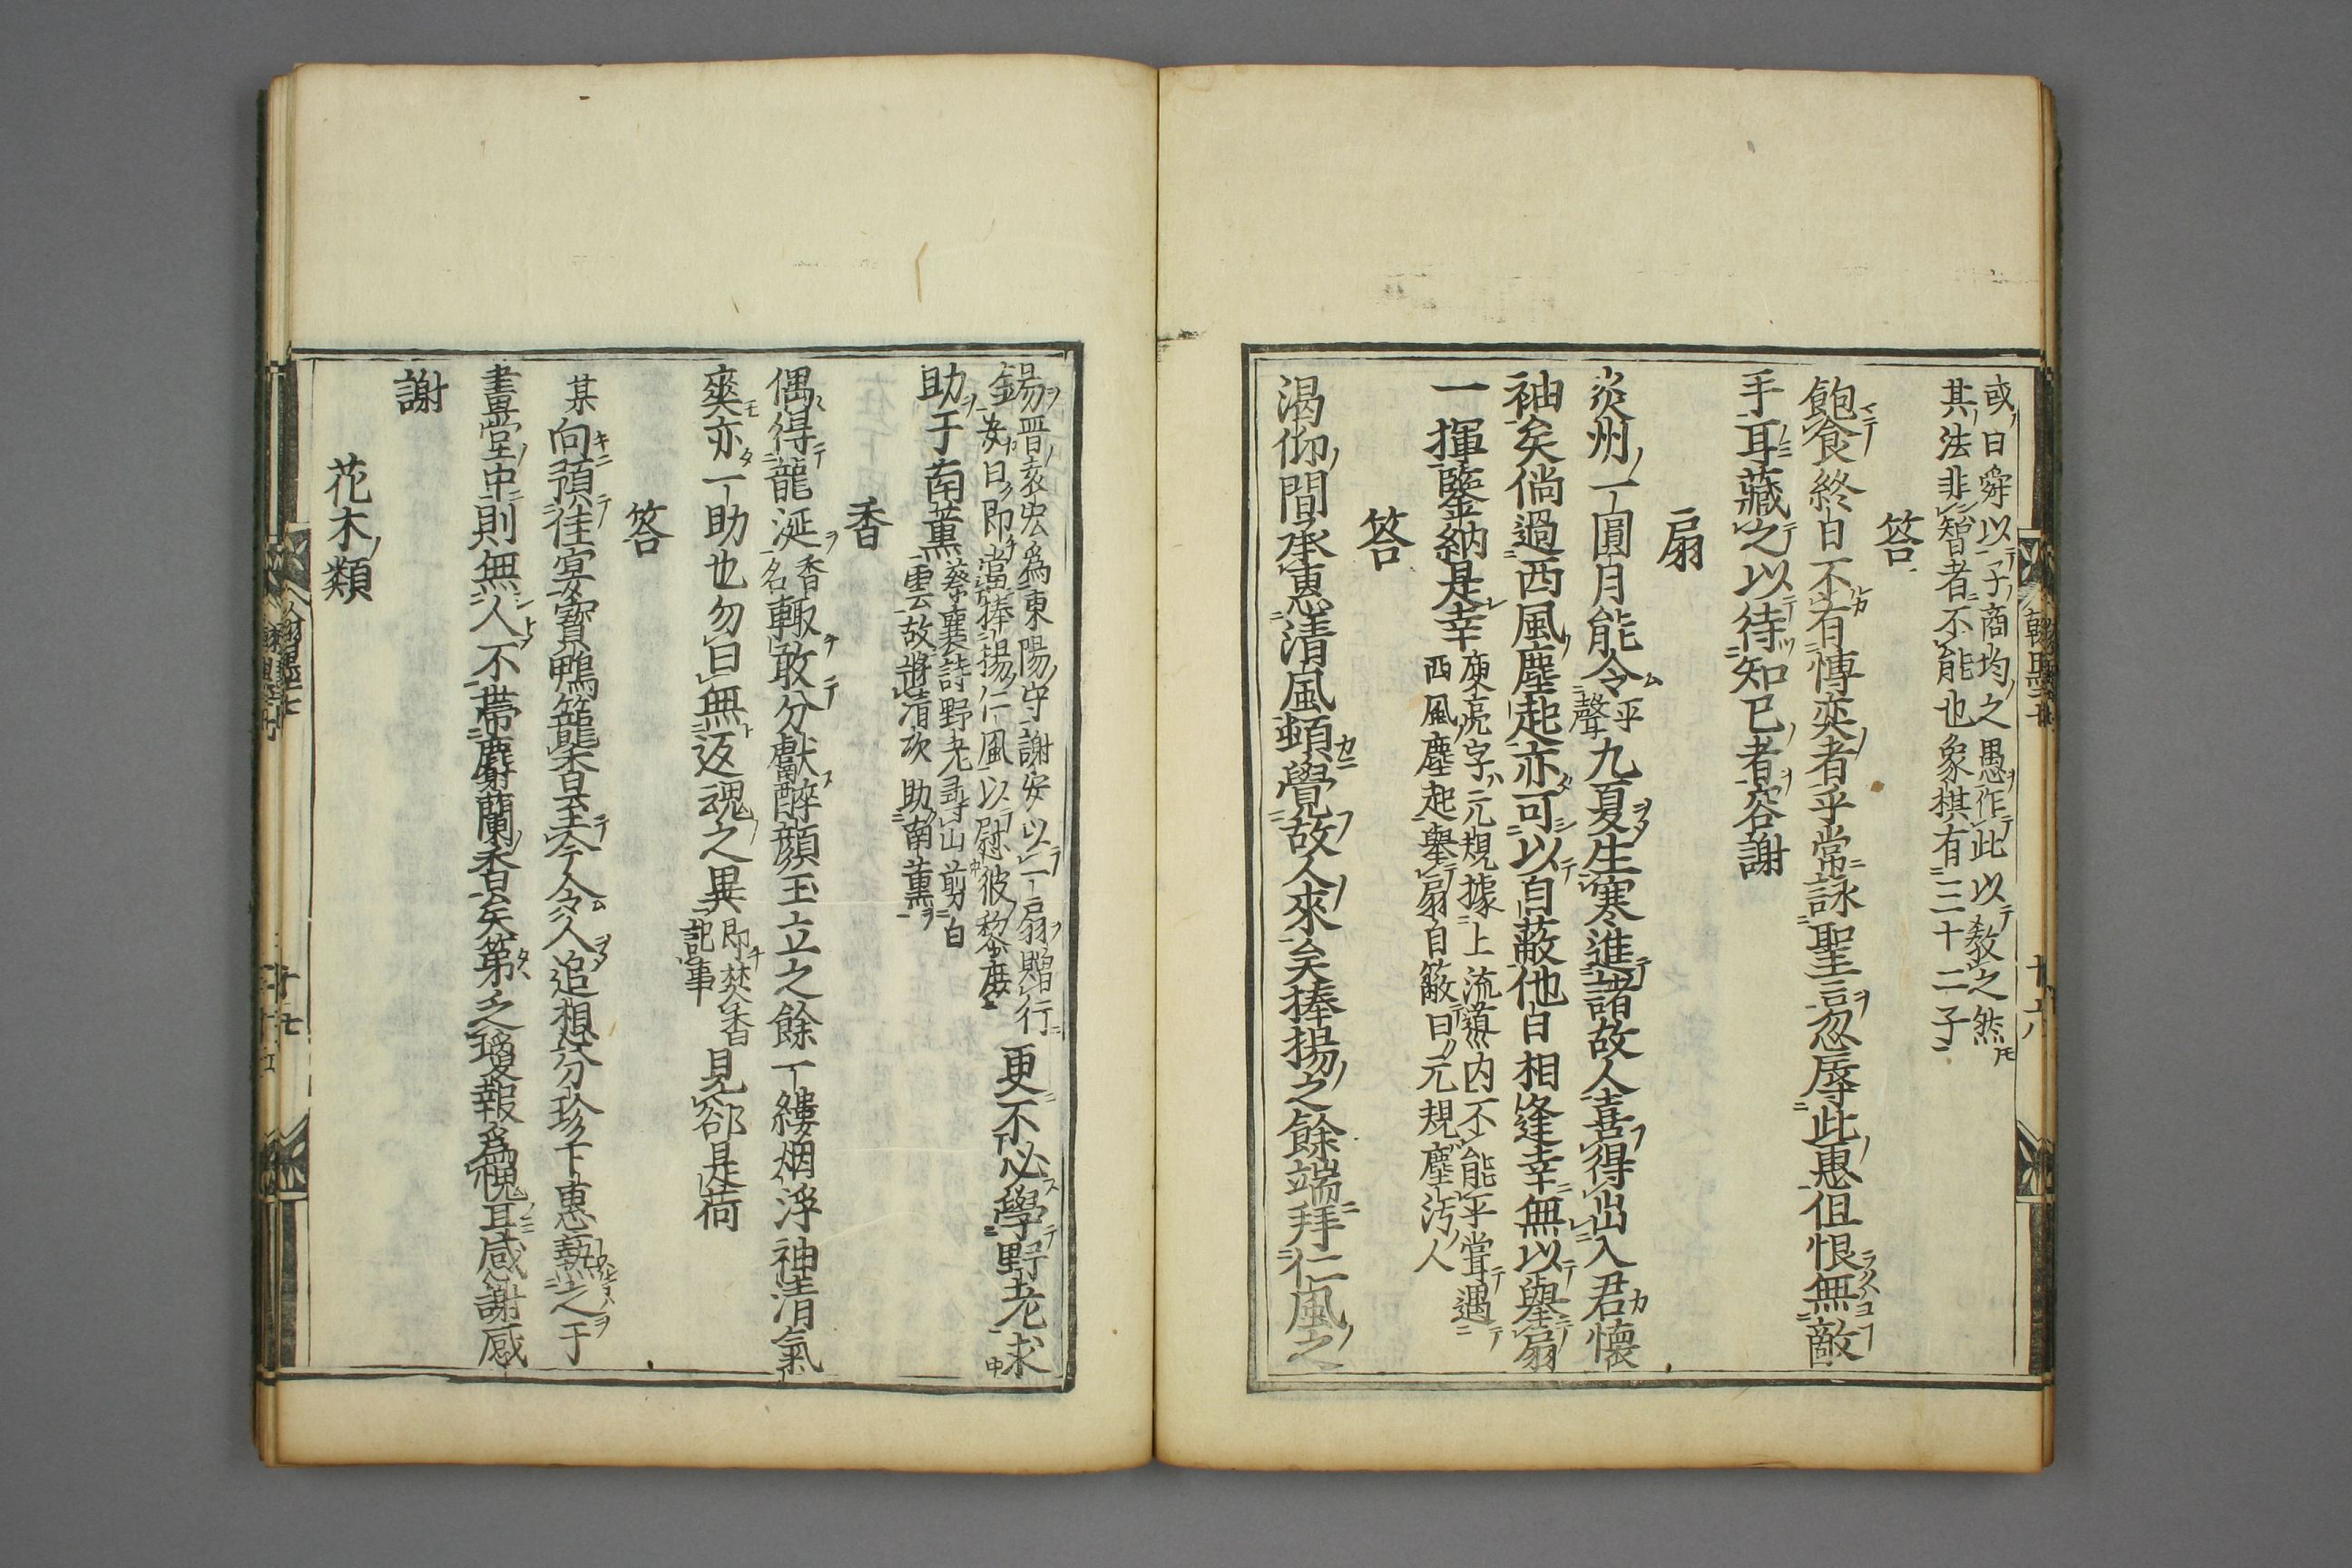 或曰舜以子商均之愚作此以教之然
其法非智者不能也象棋有三十二子
答
飽食終日不有博奕者乎常詠聖言忽辱此惠但恨無敵
手耳藏之以待知己者容謝
扇
炎州一圓月能令平聲九夏生寒進諸故人喜得出入君懷
袖矣倘過西風塵起亦可以自蔽他日相逢幸無以舉扇
一揮鑒納是幸
庾亮字元規據上流導內不能平嘗遇
西風塵起舉扇自蔽曰元規塵汚人
答
渴仰間承惠清風頓覺故人來矣捧揚之餘端拜仁風之
錫
晋袁宏為東陽守謝安以一扇贈行
安曰即當捧揚仁風以慰彼黎庶
更不必學野老求
助于南薰
蔡襄詩野老尋山剪白
雲故將清吹助南薰
香
偶得龍涎香名輙敢分獻醉顏玉立之餘一縷烟浮神清氣
爽亦一助也勿曰無返魂之異
即焚香
記事
見郤是荷
答
某向預佳宴寶鴨籠香至今令人追想分珍下惠爇之于
晝堂中則無人不帶麝蘭香矣第乏瓊報為愧耳感謝感
謝
花木類
翰墨
十六
十七